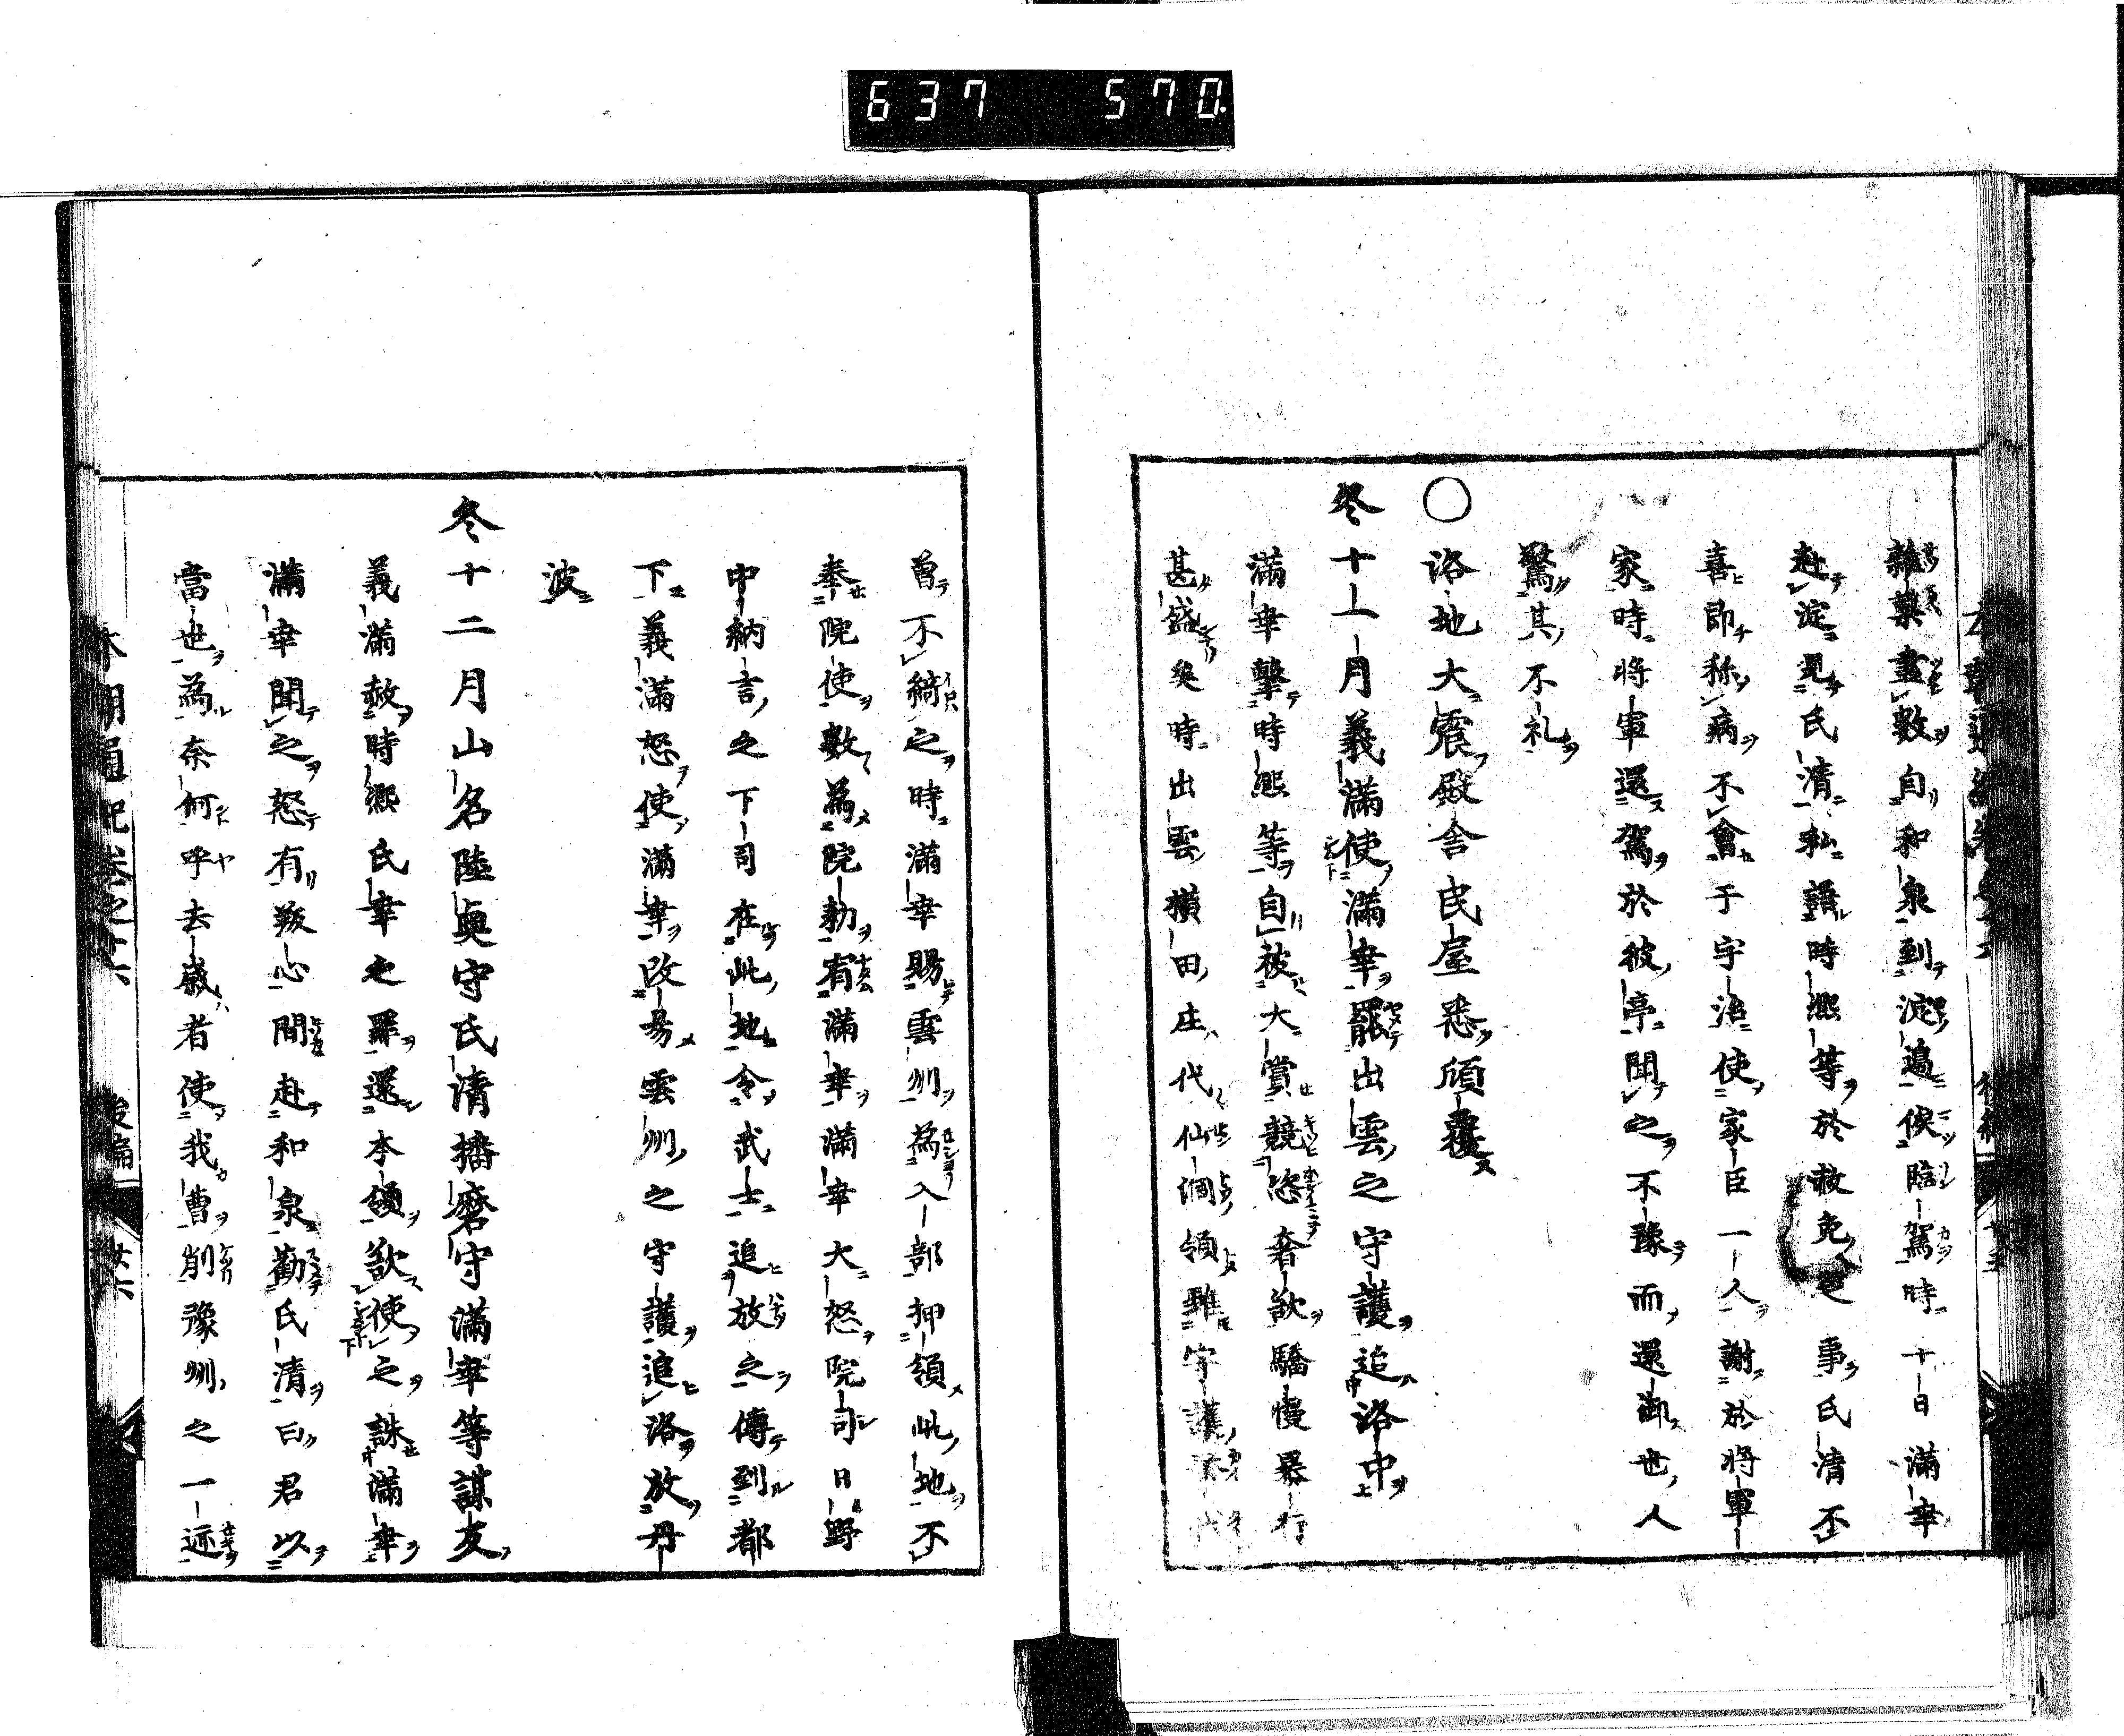 637 570.
雜㫖盡數自和泉到淀邉候臨駕時十日滿幸
赴淀見氏清私語時熈等於赦免之事氏清不
喜即称病不會于宇治使家臣一人謝於將軍
家時將軍還駕於彼亭聞之不豫而還御也人
驚其不礼
○洛地大震殿舎民屋悉頃覆
冬十一月義滿使滿幸罷出雲之守護追洛中
滿幸擊時熈等自被大賞競恣奢欲驕慢暴行
甚盛矣時出雲横田庄代仙洞領雖守護
曽不綺之時滿幸賜雲州為入部押領此地不
奉院使數為院勅有滿幸滿幸大怒院司日野
中納言之下司在此地令武士追放之傳到都
下義滿怒使滿幸改易雲州之守護追洛放丹
波
冬十二月山名陸奥守氏清播磨守滿幸等謀友
義滿赦時熈氏幸之罪還本領欲使之誅滿幸
滿幸聞之怒有叛心間赴和泉勸氏清曰君以
當世為奈何乎去歳者使我曹削豫州之一跡
本朝通紀卷之十六 後編 廿六